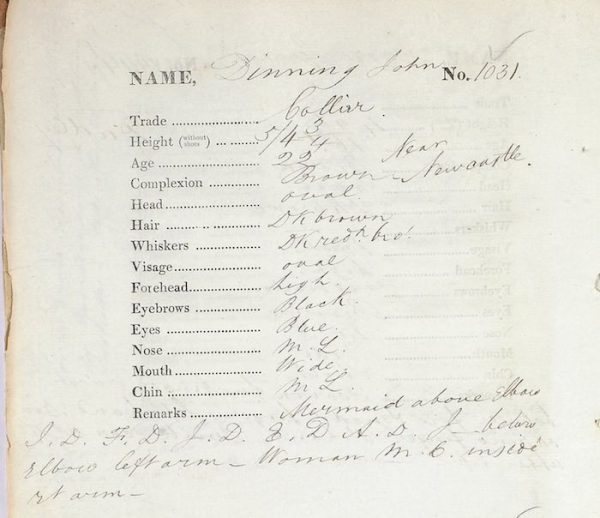 NAME, Dinning John No. 1031.
Trade Collier.
Height (without shoes) 5/4 3/4
Age 22 Near
Complexion Brown - Newcastle.
Head oval
Hair DK brown
Whiskers DK redh. bro.
Visage oval
Forehead high.
Eyebrows Black.
Eyes Blue.
Nose M. L.
Mouth Wide
Chin M L
Remarks Mermaid above Elbow
J. D. F. D. J. D. E. D A. D. J_ below
Elbow left arm _ Woman M. C. inside
rt arm _